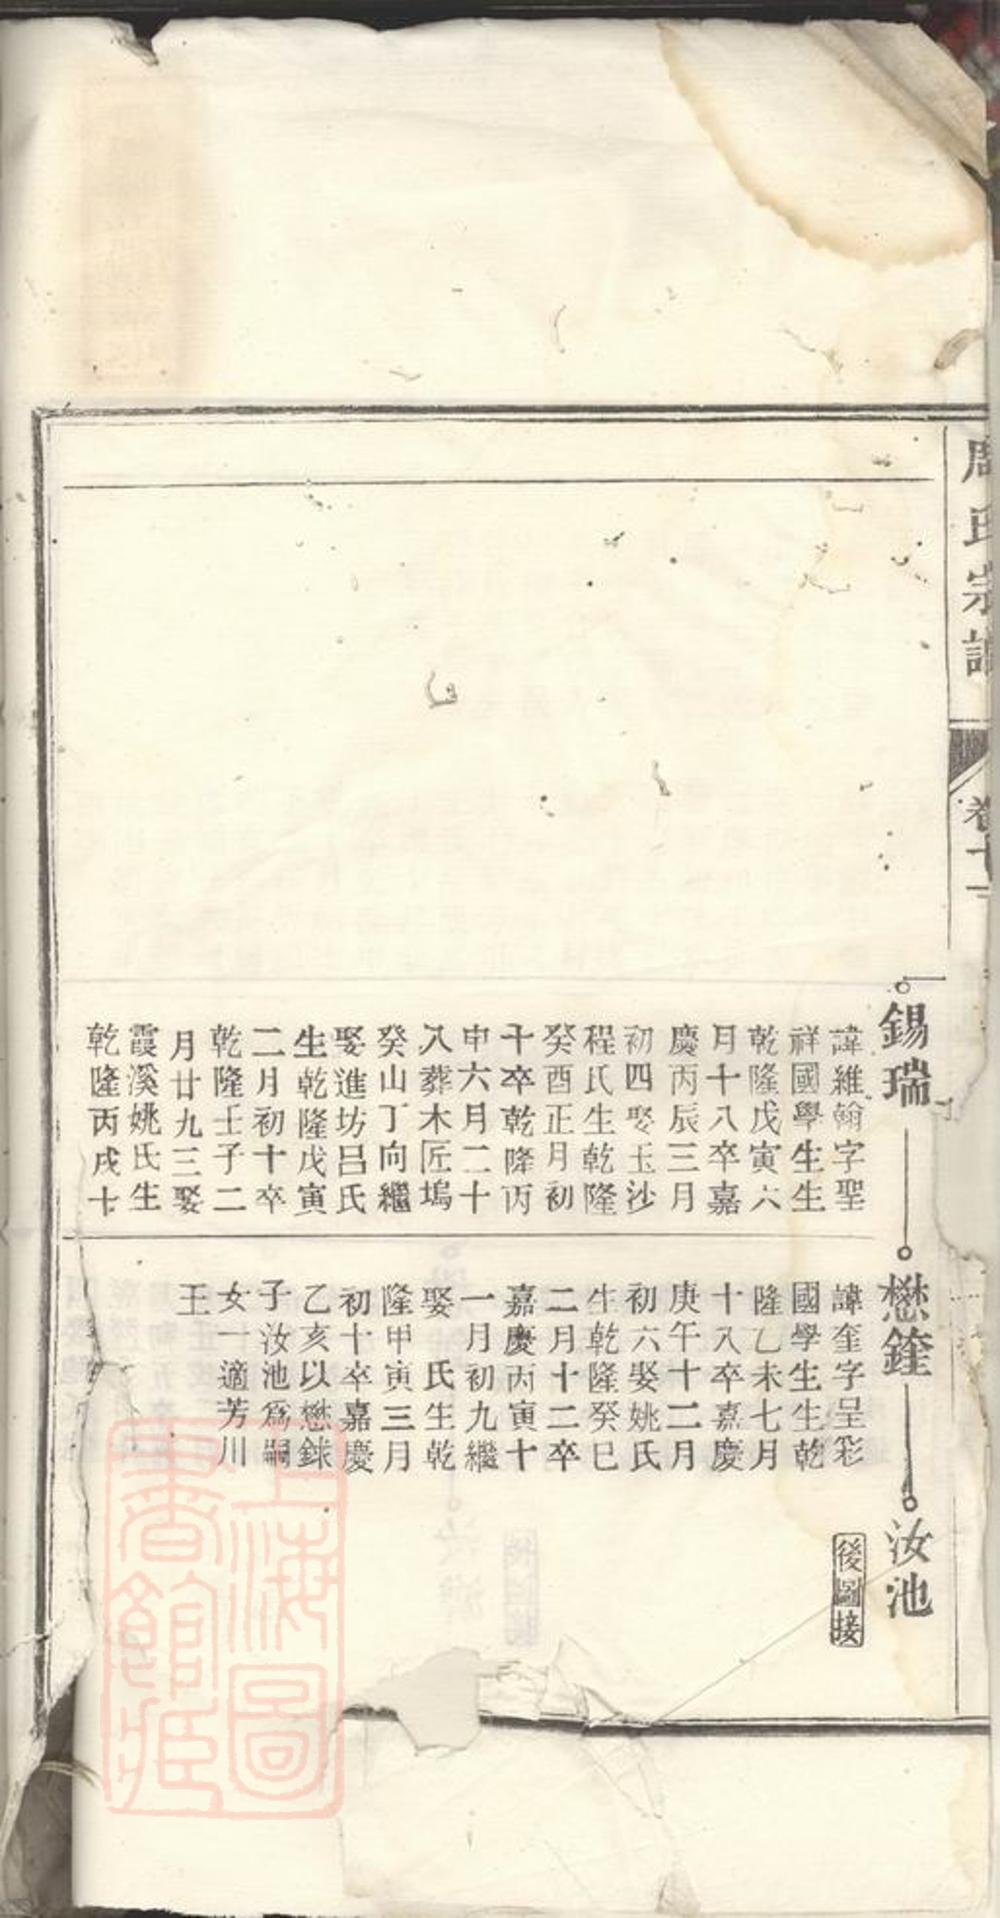 周氏宗譜
卷十一
錫瑞
諱維翰字聖
祥國學生生
乾隆戊寅六
月十八卒嘉
慶丙辰三月
初四娶玉沙
程氏生乾隆
癸酉正月初
十卒乾隆丙
申六月二十
八葬木匠塢
癸山丁向繼
娶進坊呂氏
生乾隆戊寅
二月初十卒
乾隆壬子二
月廿九三娶
霞溪姚氏生
乾隆丙戌十
懋鍷
諱奎字呈彩
國學生生乾
隆乙未七月
十八卒嘉慶
庚午十二月
初六娶姚氏
生乾隆癸巳
二月十二卒
嘉慶丙寅十
一月初九繼
娶　氏生乾
隆甲寅三月
初十卒嘉慶
乙亥以懋銾
子汝池爲嗣
女一適芳川
王
汝池
後圖接
上海圖書館藏